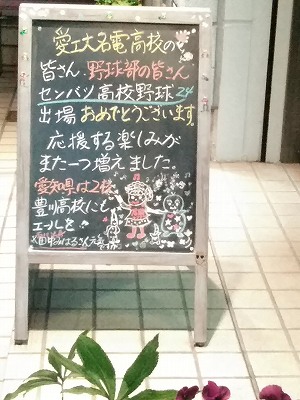 愛工大名電高校の
皆さん、野球部の皆さん
センバツ高校野球24
出場おめでとうございます。
応援する楽しみが
また一つ増えました。
愛知県は2校
豊川高校にも
エールを